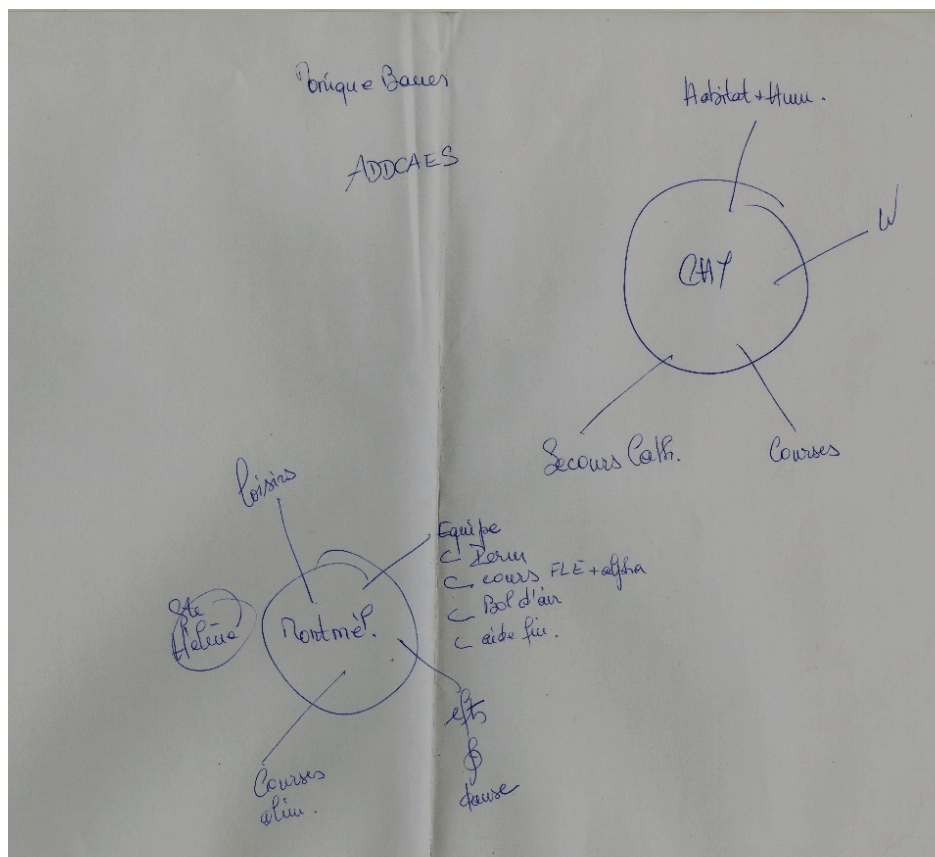 Monique
ADDCAES
Habitat + Hum.
CHY
W
Secours Cath.
Courses
Loisirs
Equipe
Perm
cours FLE + alpha
Bol d'air
aide fin.
Ste
Hélène
Montmél.
Courses
alim.
danse